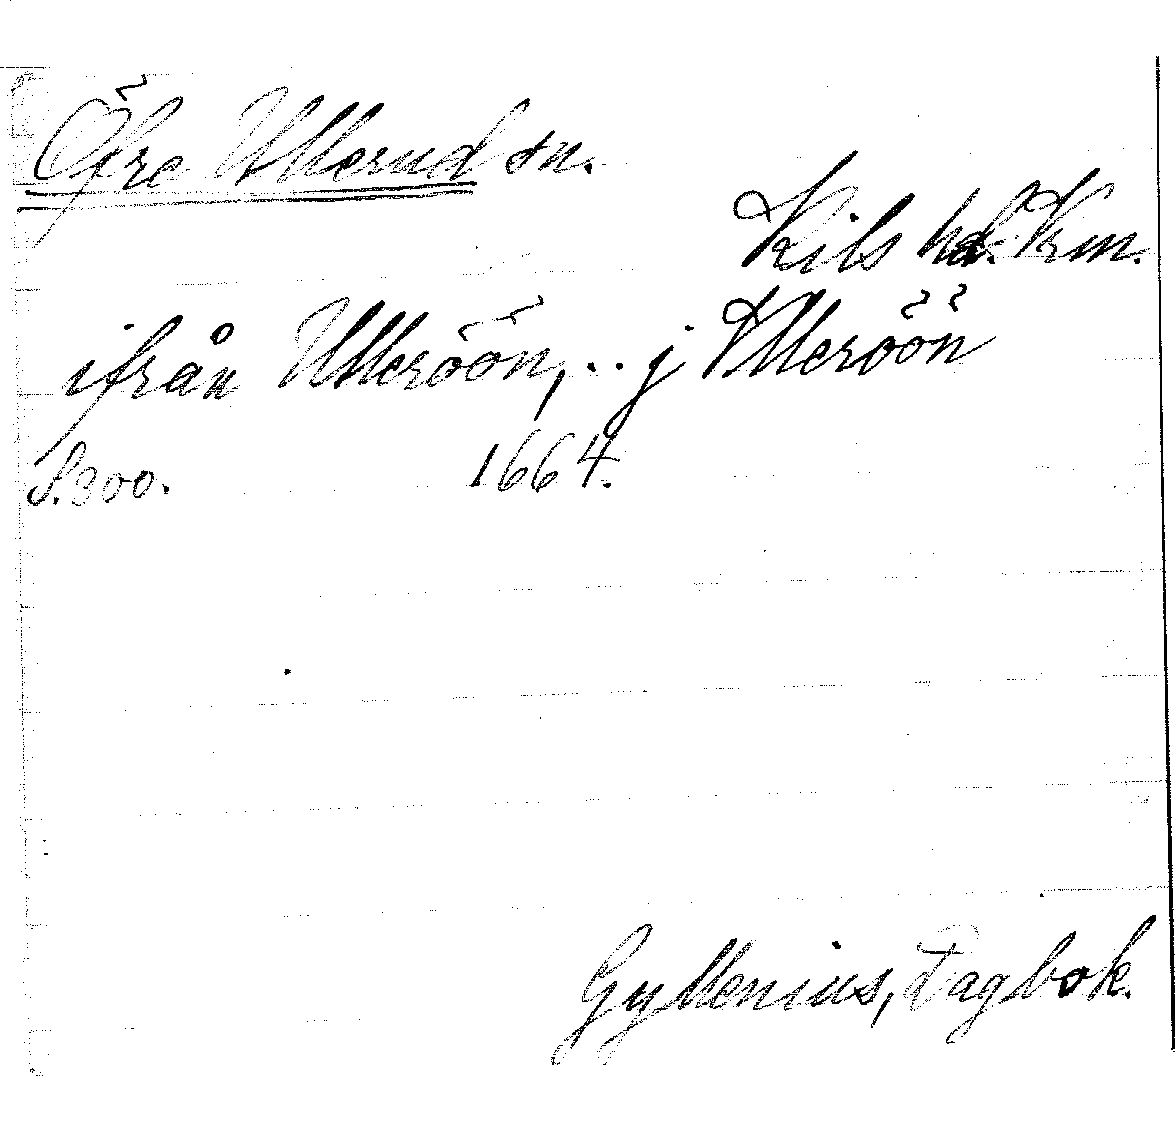 Öfre Ullerud sn.
Kils hd. Krm.
ifrån Ulleröön, .. j Ulleröön
S. 300. 1664.
Gyllenius, Dagbok.